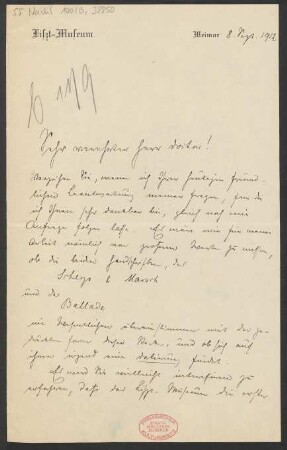 55 Nachl 100/B, 38850
Liszt-Museum
Weimar 8 Sept. 1912
6 11/9
Sehr verehrter Herr Doktor!
Verzeihen Sie, wenn ich Ihrer heutigen freund-
lichen Beantwortung meiner Fragen, für die
ich Ihnen sehr dankbar bin, gleich noch eine
Anfrage folgen lasse. Es wäre mir für meine
Arbeit nämlich von großem Werte zu wissen,
ob die beiden Handschriften, des
Scherzo & Marsch
und der
Ballade
im Wesentlichen übereinstimmen mit der ge-
druckten Form dieser Werke, und ob sich auf
ihnen irgend eine Datierung findet.
Es wird Sie vielleicht interessieren zu
erfahren, dass das Liszt-Museum die ersten